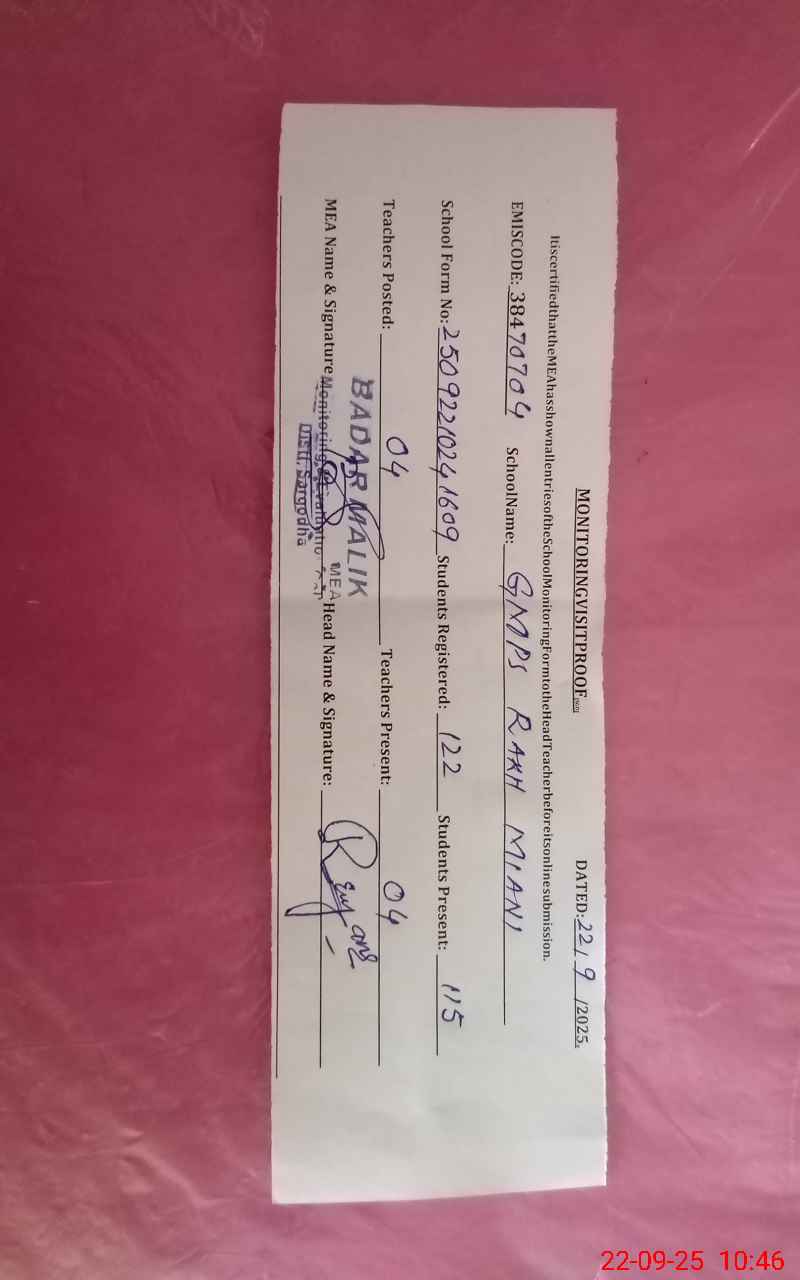 MONITORINGVISITPROOF DATED: 22/9 /2025.
ItiscertifiedthattheMEAhasshownallentriesoftheSchoolMonitoringFormtotheHeadTeacherbeforeitsonlinesubmission.
EMISCODE: 38470704 SchoolName: GMPS RAKH MIANI
School Form No: 25092210241609 Students Registered: 122 Students Present: 115
Teachers Posted: 04 Teachers Present: 04
BADAR MALIK
MEA Name & Signature Monitoring & MEA Head Name & Signature:
Distt. Sargodha
22-09-25 10:46